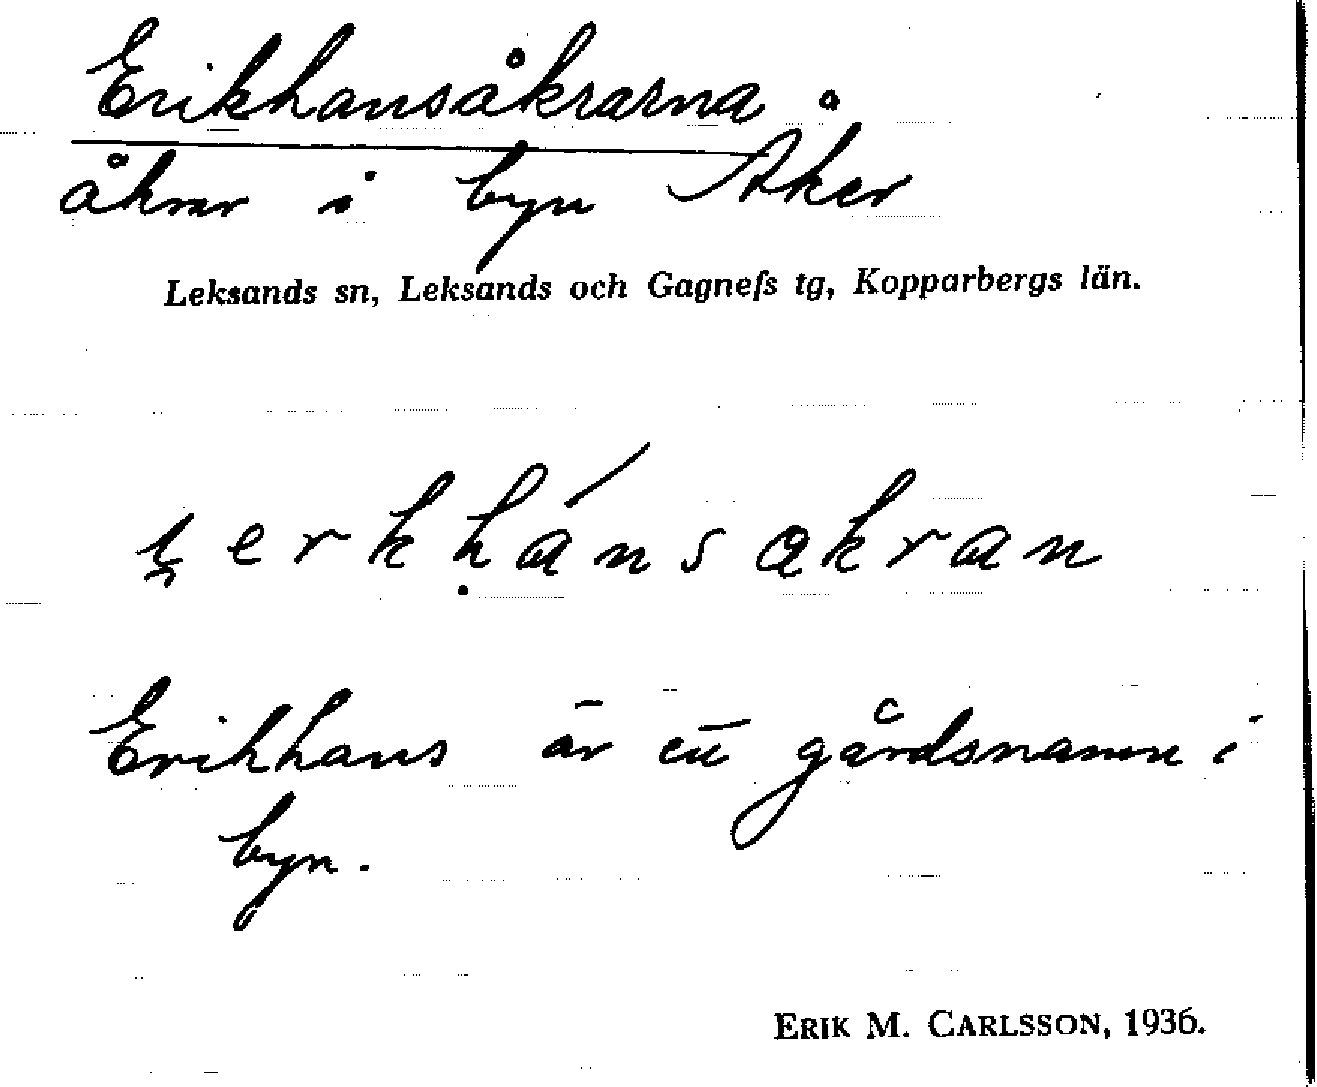 Erikhansåkrarna
åkrar i byn Åker
Leksands sn, Leksands och Gagnefs tg, Kopparbergs län.
erkḥánsakran
Erikhans är ett gårdsnamn i
byn.
ERIK M. CARLSSON, 1936.